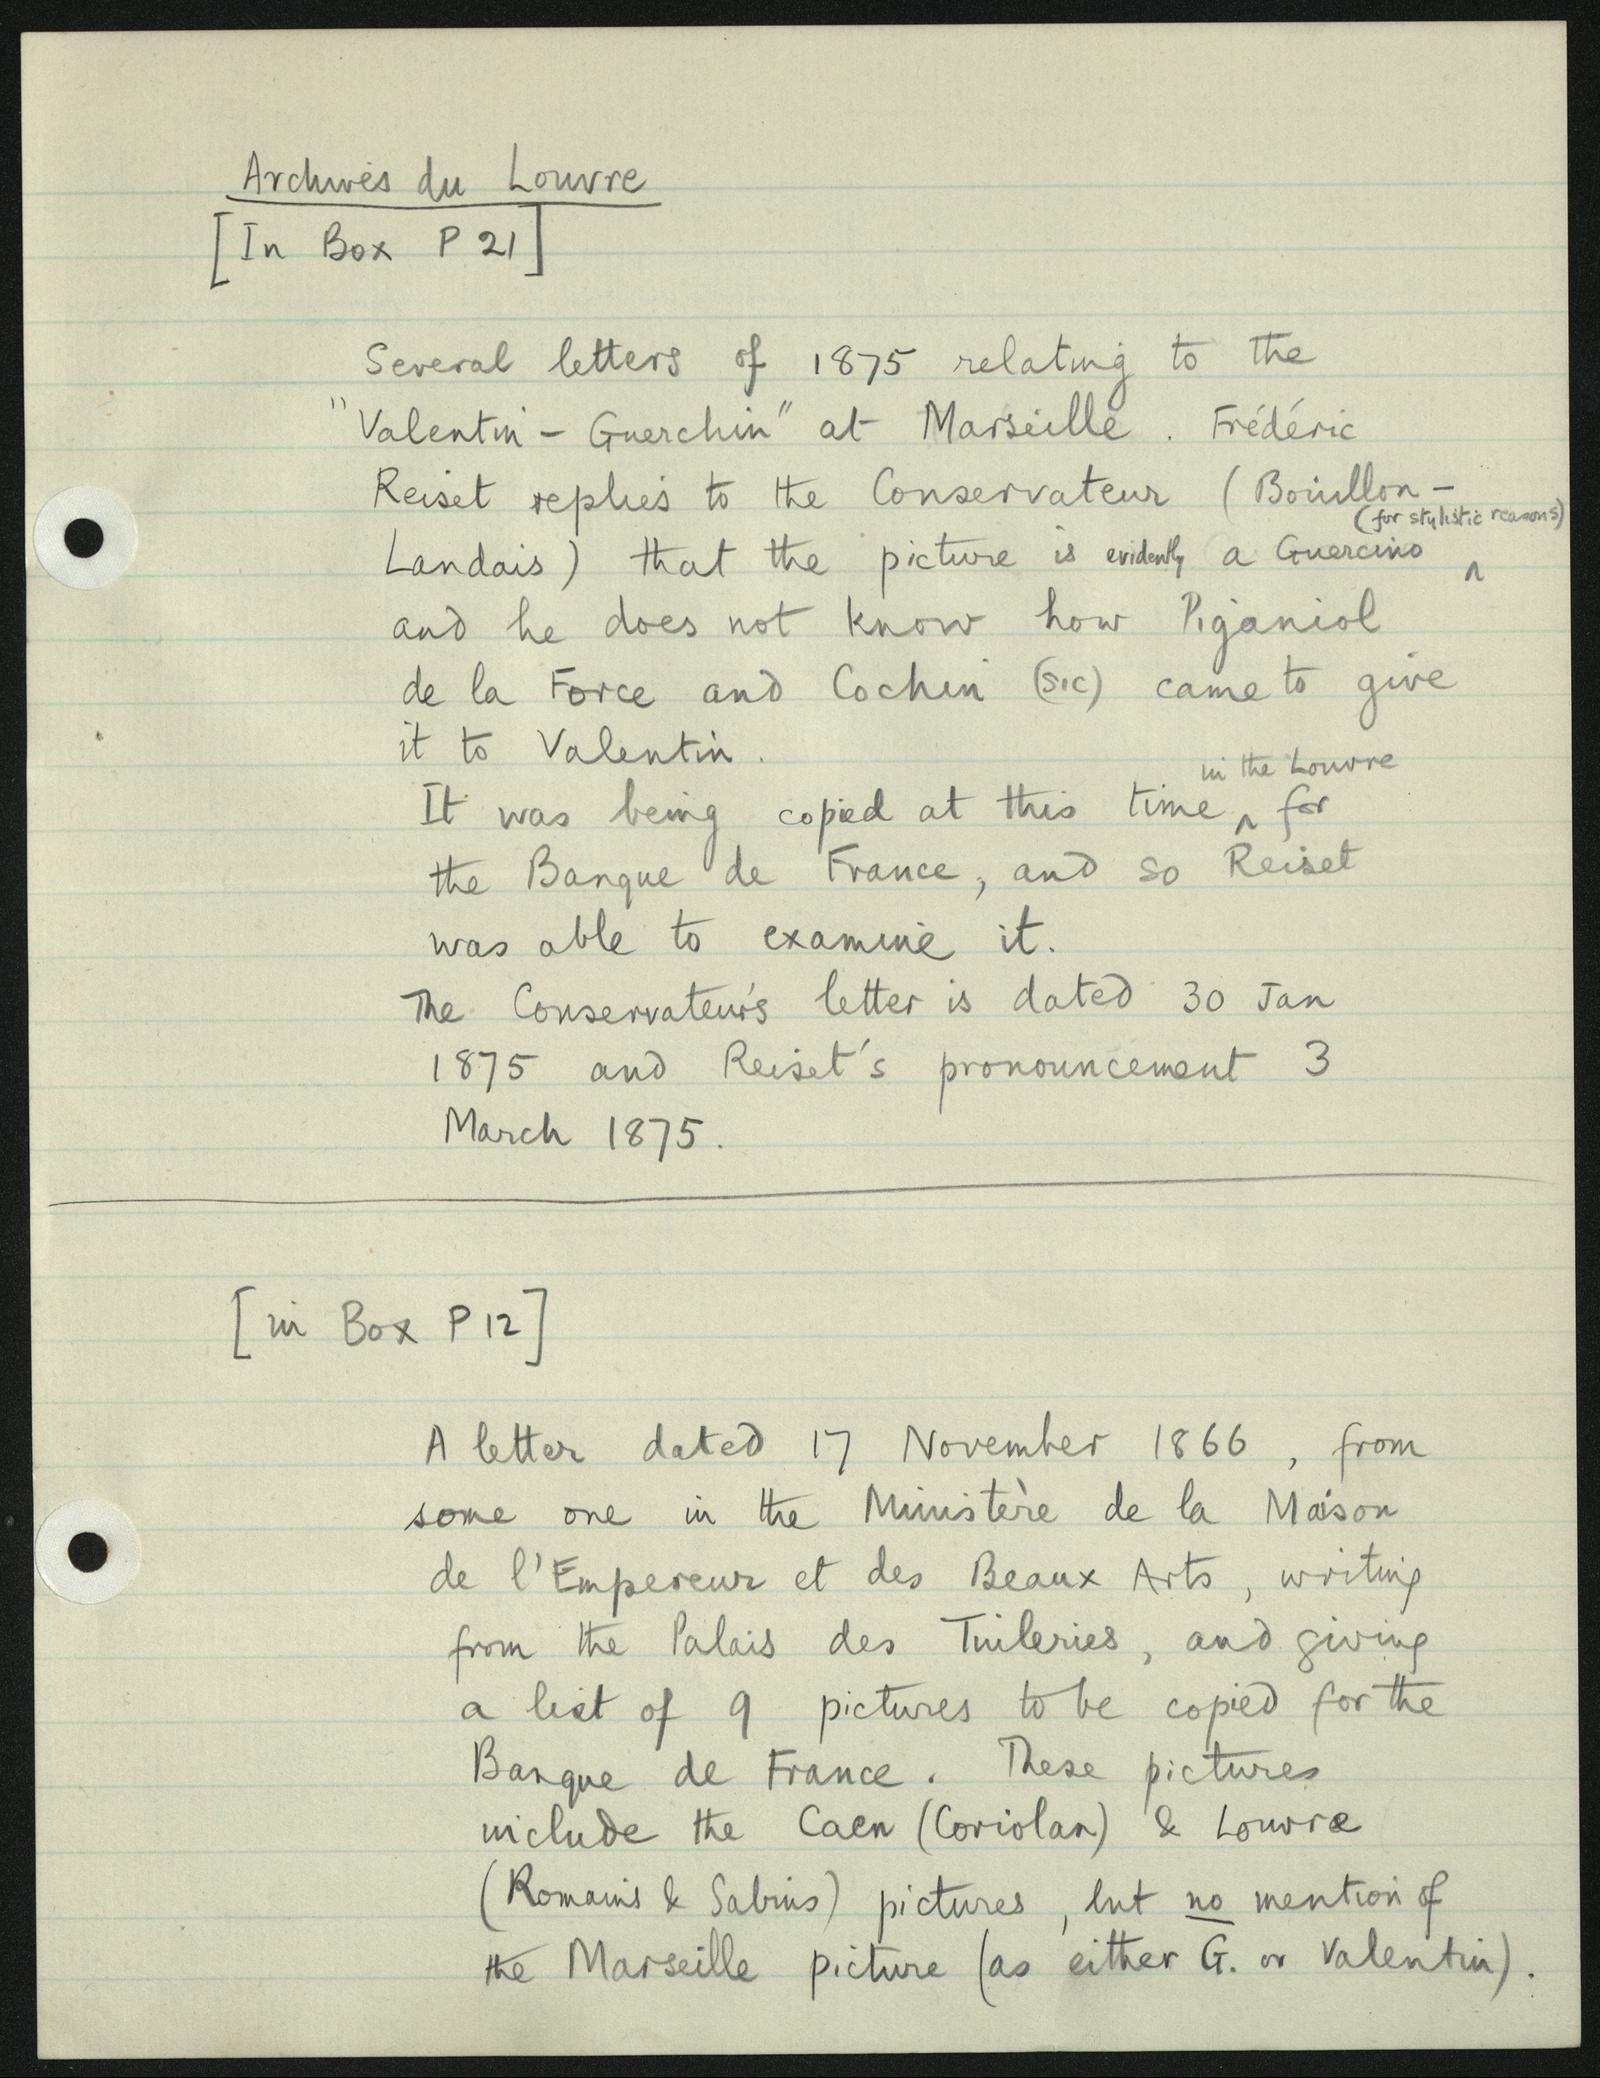 Archives du Louvre
[In Box P 21]
Several letters of 1875 relating to the
"Valentin - Guerchin" at Marseille. Frédéric
Reiset replies to the Conservateur (Bouillon-
(for stylistic reasons)
Landais) that the picture is evidently a Guercino ^
and he does not know how Piganiol
de la Force and Cochin (sic) came to give
it to Valentin.
in the Louvre
It was being copied at this time ^ for
the Banque de France, and so Reiset
was able to examine it.
The Conservateur's letter is dated 30 Jan
1875 and Reiset's pronouncement 3
March 1875.
[in Box P 12]
A letter dated 17 November 1866, from
some one in the Ministère de la Maison
de l'Empereur et des Beaux Arts, writing
from the Palais des Tuileries, and giving
a list of 9 pictures to be copied for the
Banque de France. These pictures
include the Caen (Coriolan) & Louvre
(Romains & Sabins) pictures, but no mention of
the Marseille picture (as either G. or Valentin).